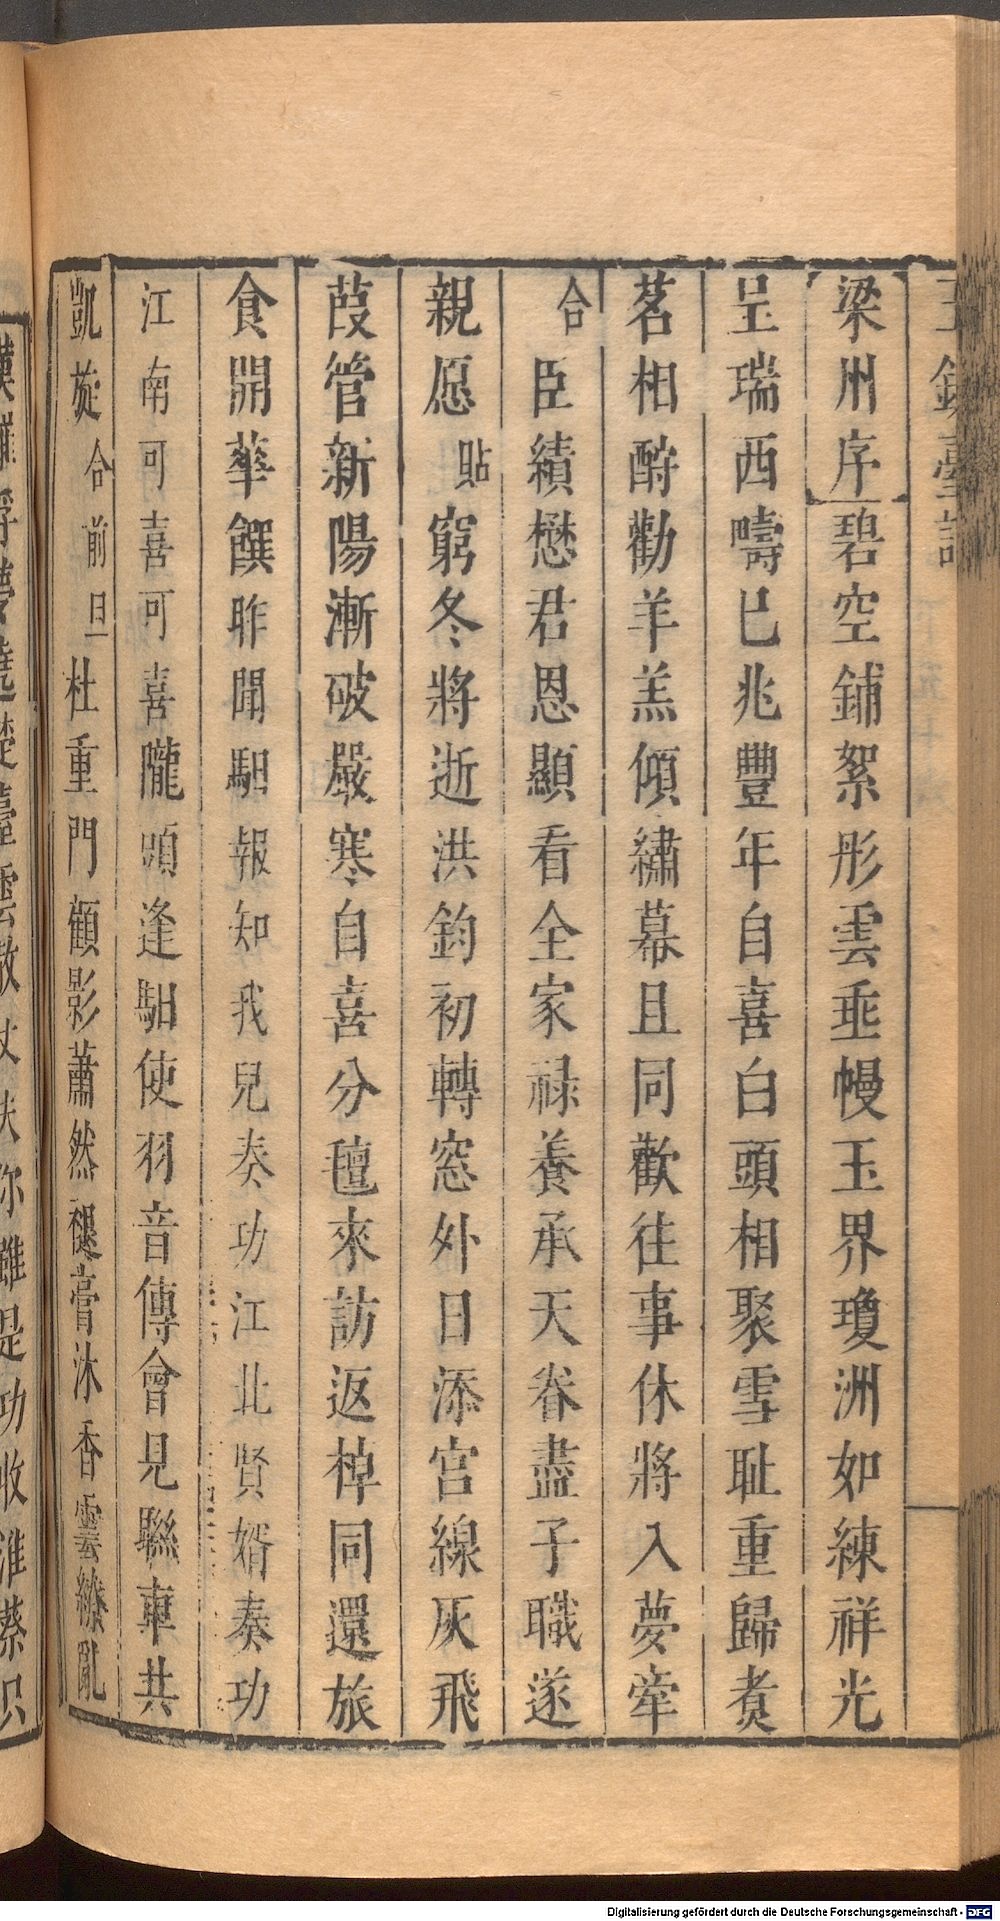 玉鏡臺記
梁州序碧空鋪絮彤雲垂幔玉界瓊洲如練祥光
呈瑞西疇巳兆豐年自喜白頭相聚雪耻重歸煑
茗相酧勸羊羔傾繡幕且同歡往事休將入夢牽
合臣績懋君恩顯看全家禄養承天眷盡子職遂
親愿貼窮冬將逝洪鈞初轉窓外日添宮線灰飛
葭管新陽漸破嚴寒自喜分氊來訪返棹同還旅
食開華饌昨聞馹報知我兒奏功江北賢婿奏功
江南可喜可喜隴頭逢馹使羽音傳會見聯車共
凱旋合前旦杜重門顧影蕭然褪膏沐香雲繚亂
臺雲散 雖是功收淮蔡只
Digitalisierung gefördert durch die Deutsche Forschungsgemeinschaft - DFG